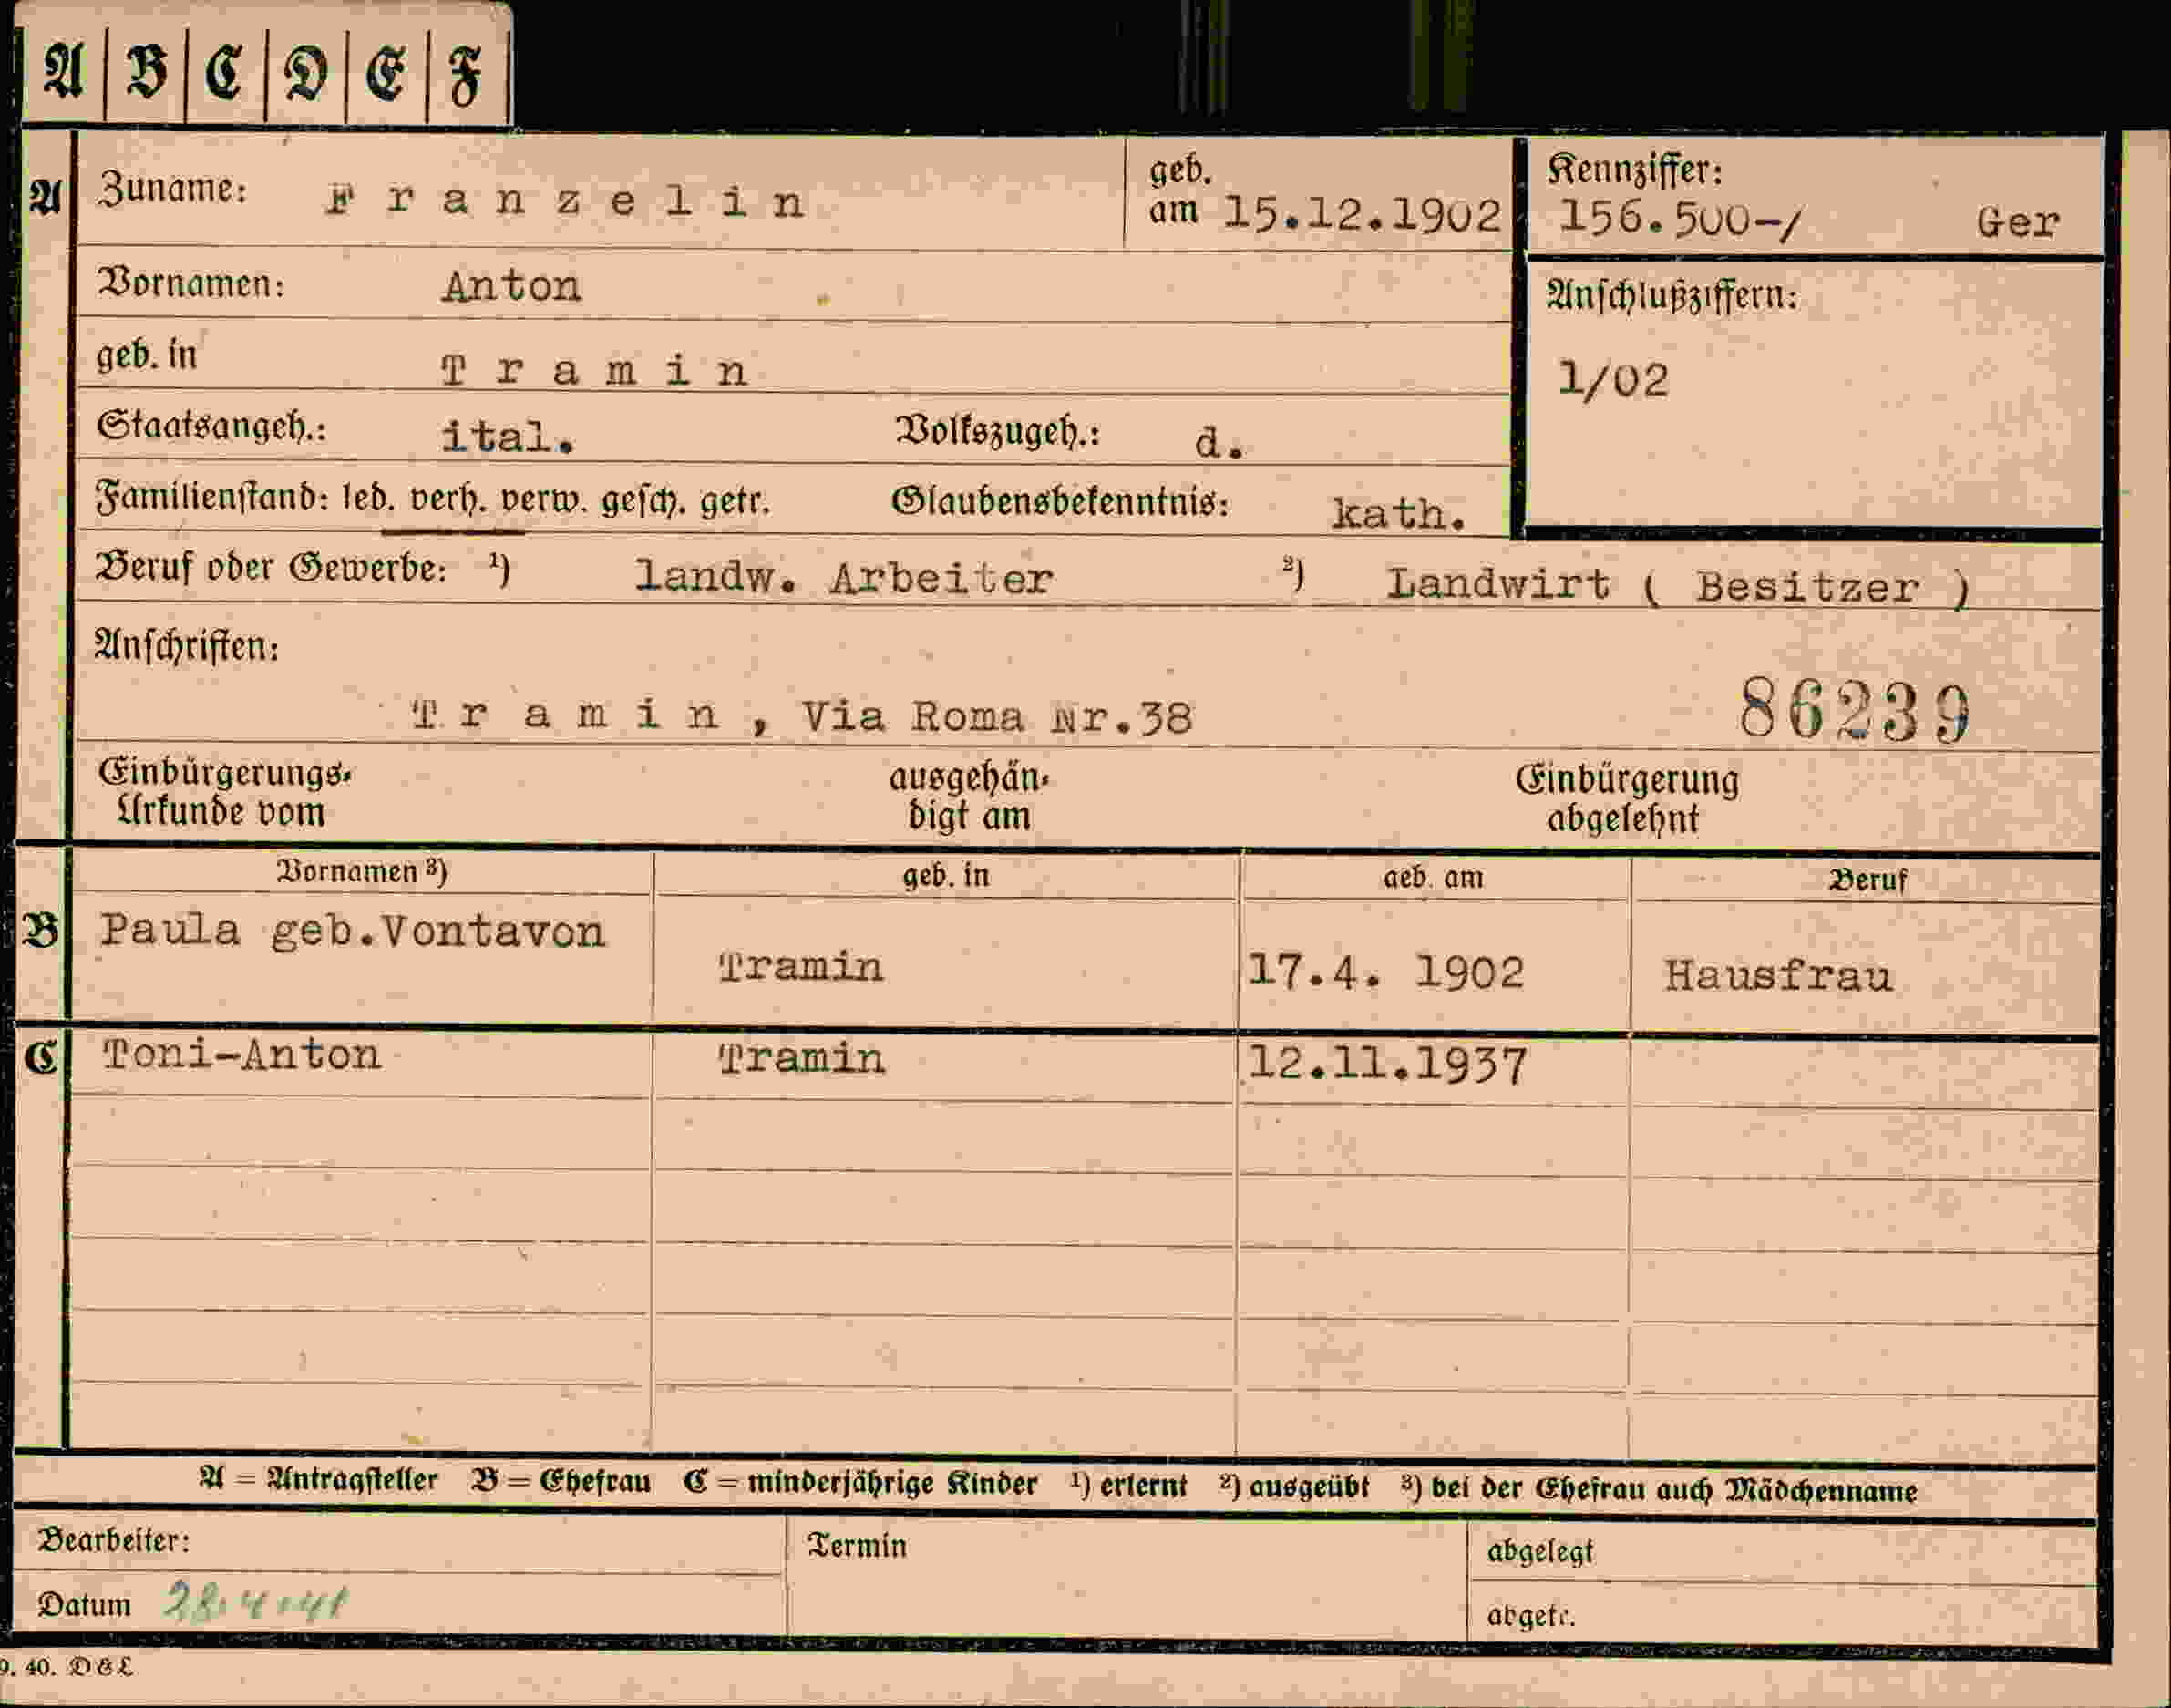 A B C D E F
A Zuname: Franzelin geb. am 15.12.1902 Kennziffer: 156.500-/ Ger
Vornamen: Anton Anschlußziffern:
geb. in Tramin 1/02
Staatsangeh.: ital. Volkszugeh.: d.
Familienstand: led. verh. verw. gesch. getr. Glaubensbekenntnis: kath.
Beruf oder Gewerbe: ¹) landw. Arbeiter ²) Landwirt ( Besitzer )
Anschriften:
Tramin, Via Roma Nr.38 86239
Einbürgerungs- ausgehän- Einbürgerung
Urkunde vom digt am abgelehnt
Vornamen ³) geb. in geb. am Beruf
B Paula geb.Vontavon Tramin 17.4. 1902 Hausfrau
C Toni-Anton Tramin 12.11.1937
A = Antragsteller B = Ehefrau C = minderjährige Kinder ¹) erlernt ²) ausgeübt ³) bei der Ehefrau auch Mädchenname
Bearbeiter: Termin abgelegt
Datum 28.4.41 abgetr.
9. 40. D & L